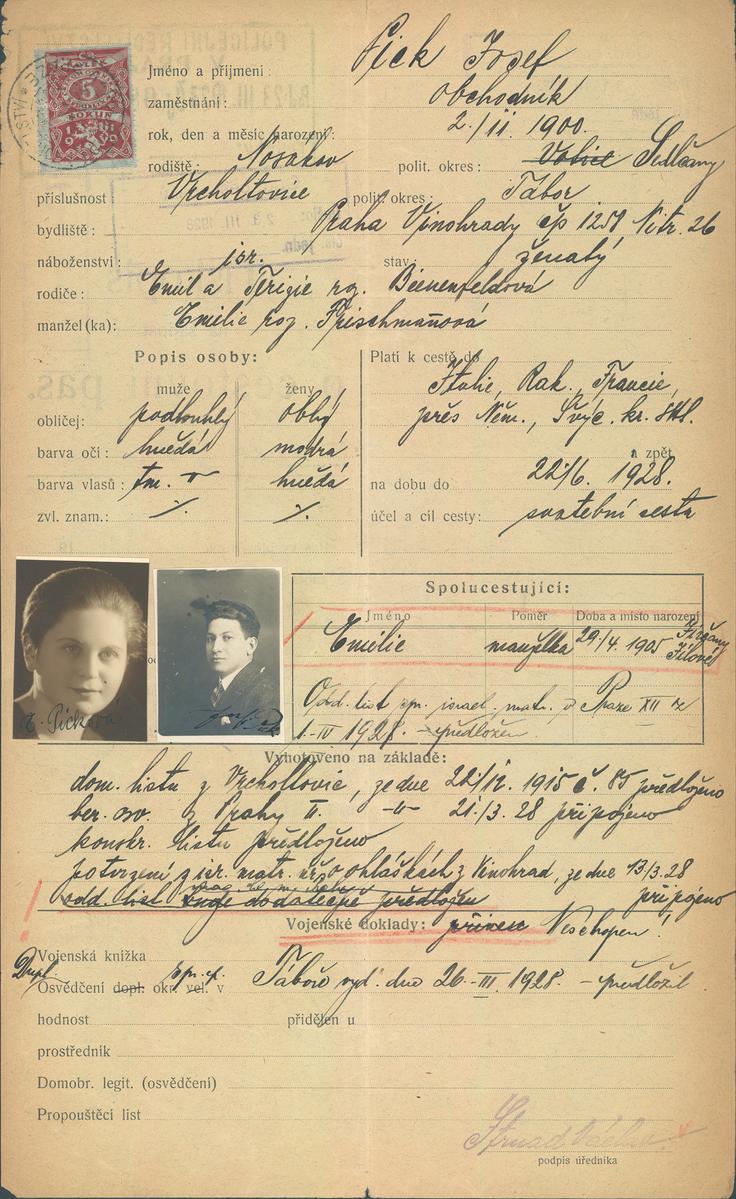 5
KORUN
Jméno a příjmení: Pick Josef
zaměstnání: obchodník
rok, den a měsíc narození: 2./II. 1900.
rodiště: Nosákov polit. okres: Votice Sedlčany
příslušnost: Vrcholtovice polit. okres: Tábor
bydliště: Praha Vinohrady čp 1257 Nitr. 26
náboženství: isr. stav: ženatý
rodiče: Emil a Terezie roz. Bienenfeldová
manžel (ka): Emilie roz. Frischmanová
Popis osoby:
muže ženy
obličej: podlouhlý oblý
barva očí: hnědá modrá
barva vlasů: tm. hnědá
zvl. znam.: ·/. ·/.
Platí k cestě do
Italie, Rak., Francie,
přes Něm., Švýc. kr. štl.
a zpět
na dobu do 22/6. 1928.
účel a cíl cesty: svatební cesta
Spolucestující:
Jméno Poměr Doba a místo narození
Emilie manželka 29./4. 1905
Odd. list isral. matr. v Praze XII z
1.-IV 1928. - předložen
E. Picková
Vyhotoveno na základě:
dom. listu z Vrcholtovic, ze dne 22/12. 1915 č. 85 předloženo
ber. osv. z Prahy II. -„- 21./3. 28 připojeno
konskr. listu předloženo
potvrzení z isr. matr. úř. o ohláškách z Vinohrad, ze dne 13/3. 28
připojeno
odd. list bude dodatečně předložen
Vojenské doklady: Neschopen!
Vojenská knížka
Dupl.
Osvědčení dopl. okr. vel. v Táboře vyd. dne 26.-III. 1928. - předložil
hodnost přidělen u
prostředník
Domobr. legit. (osvědčení)
Propouštěcí list
Strnad Václav
podpis úředníka